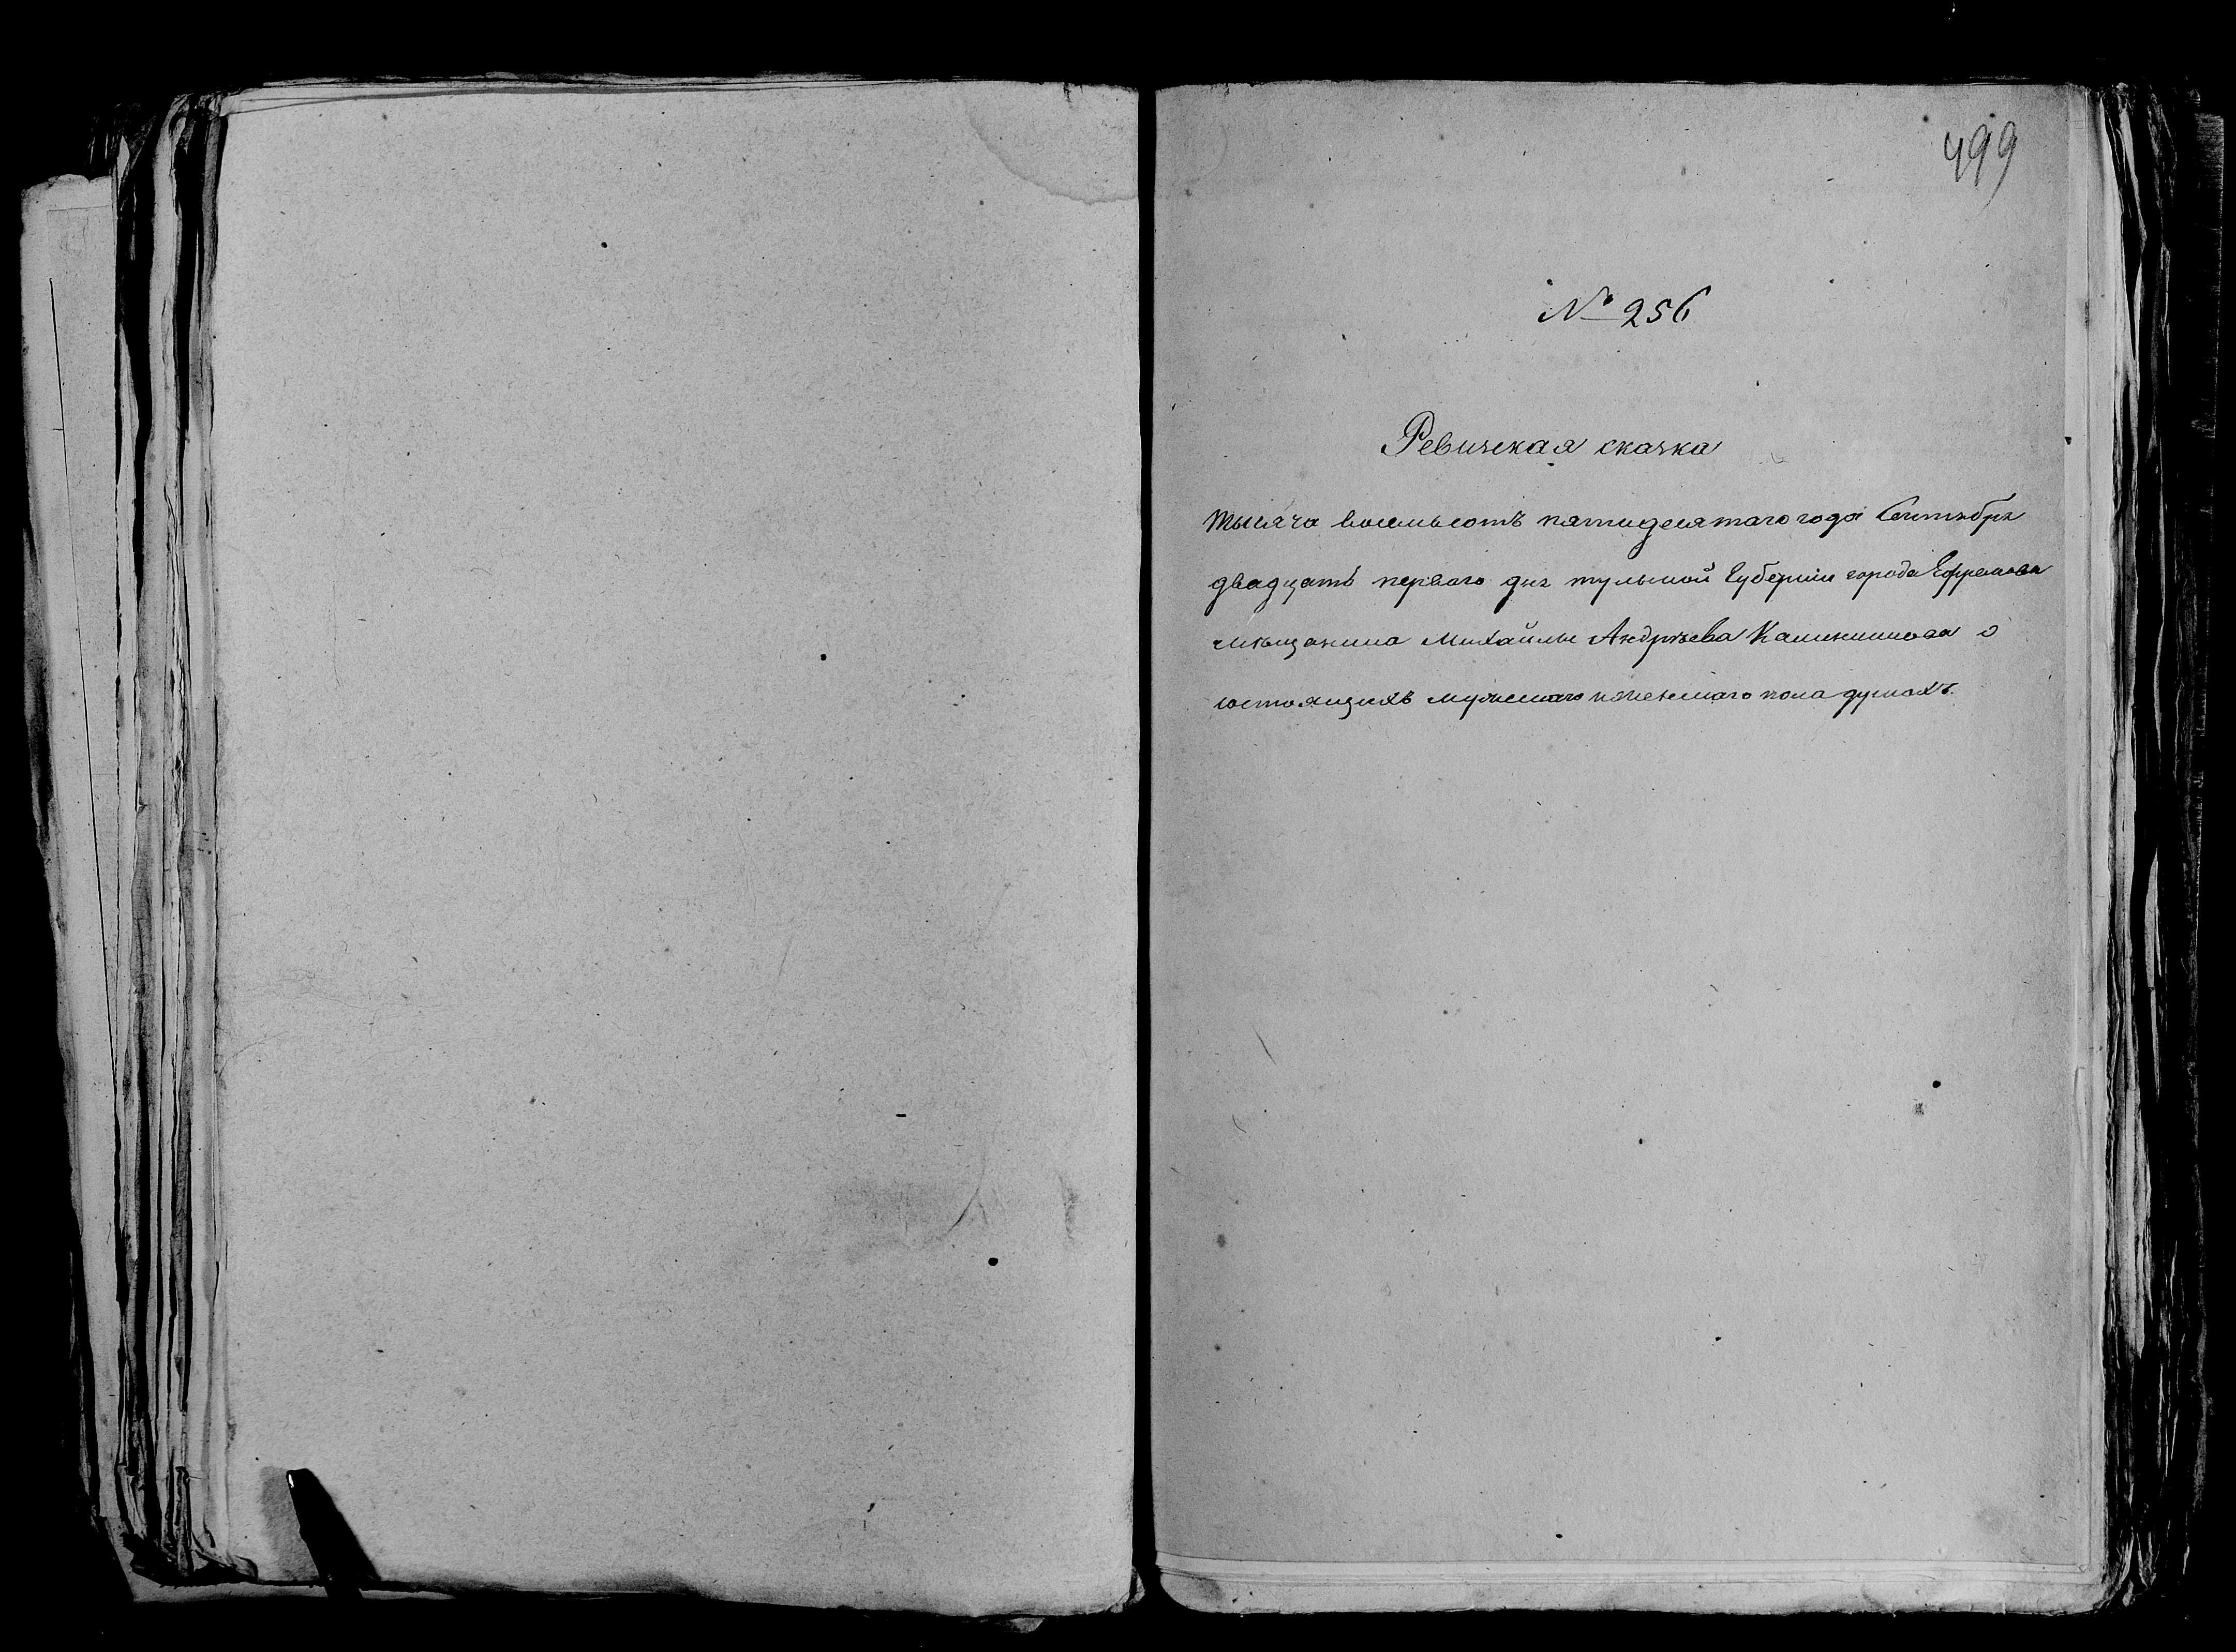 499
№ 256
Ревизская сказка
тысяча восемьсотъ пятидесятаго года Сентября
двадцать перваго дня тульской Губерніи города Ефремова
мѣщанина Михайлы Андрѣева о
состоящихъ мужескаго и женскаго пола душахъ.